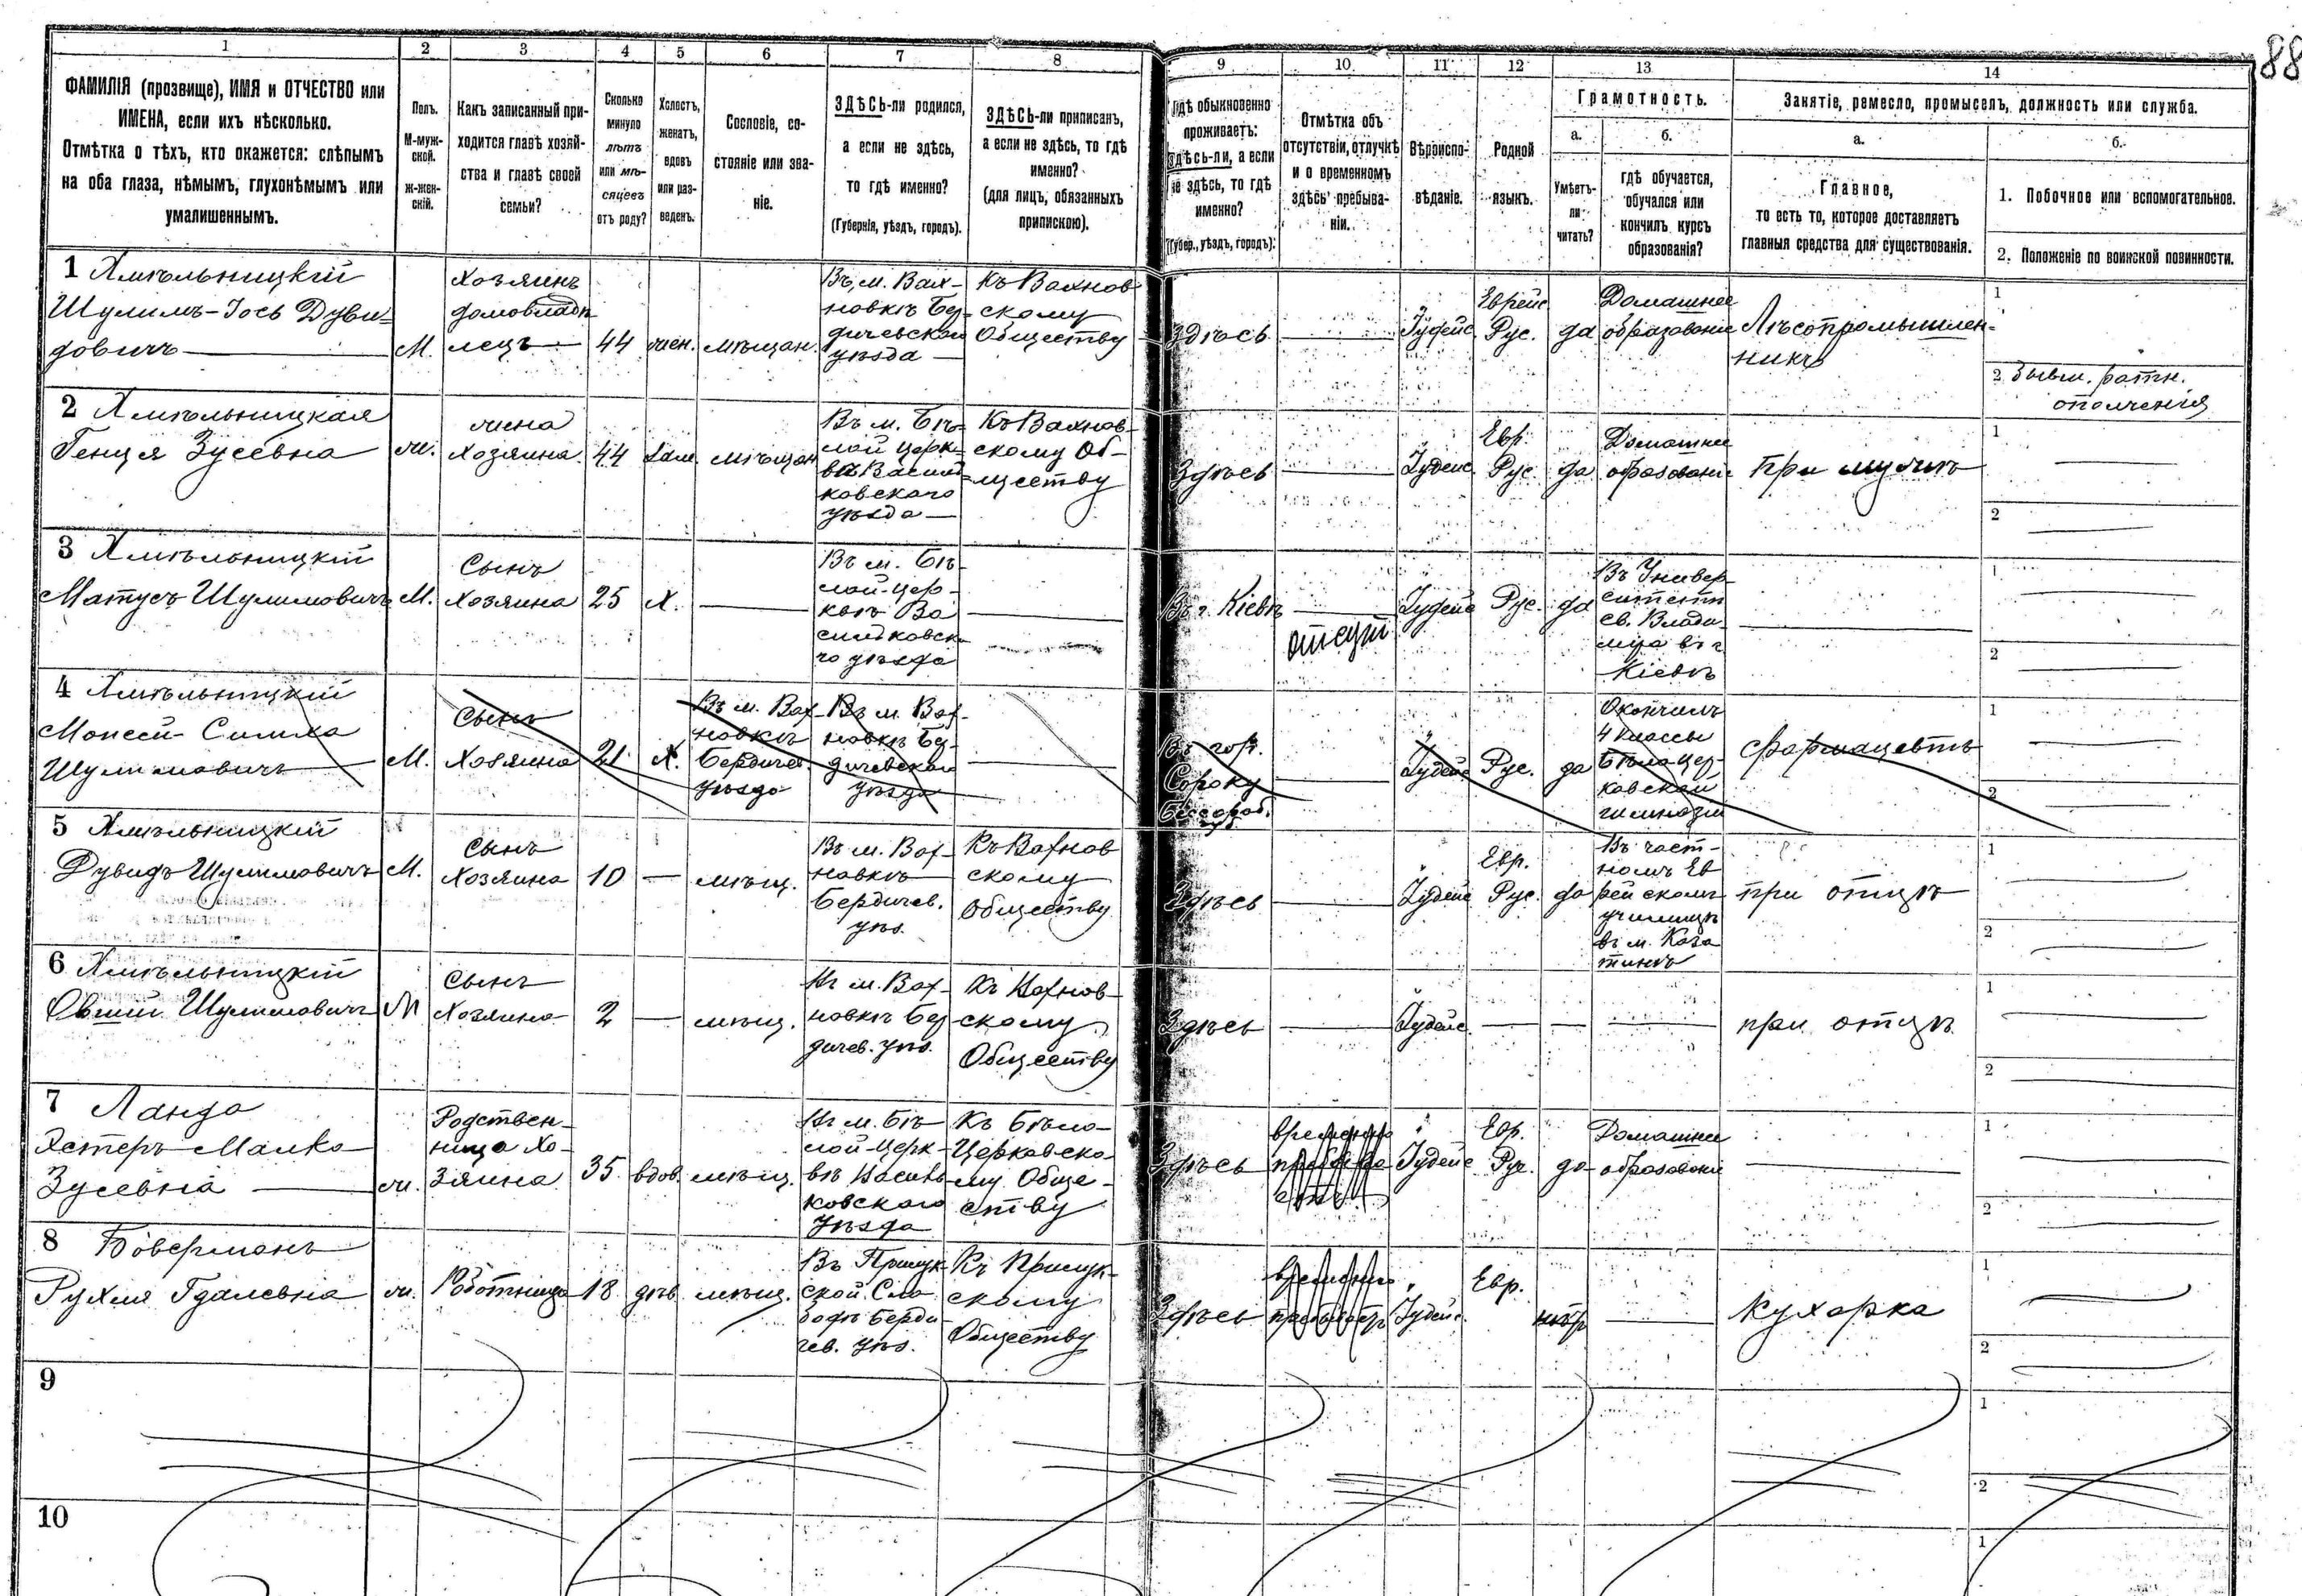 88
1
2
3
4
5
6
7
8
9
10
11
12
13
14
ФАМИЛІЯ (прозвище), ИМЯ и ОТЧЕСТВО или
ИМЕНА, если ихъ нѣсколько.
Отмѣтка о тѣхъ, кто окажется: слѣпымъ
на оба глаза, нѣмымъ, глухонѣмымъ или
умалишеннымъ.
Полъ.
М-муж-
ской.
ж-жен-
скій.
Какъ записанный при-
ходится главѣ хозяй-
ства и главѣ своей
семьи?
Сколько
минуло
лѣтъ
или мѣ-
сяцевъ
отъ роду?
Холостъ,
женатъ,
вдовъ
или раз-
веденъ.
Сословіе, со-
стояніе или зва-
ніе.
ЗДѢСЬ-ли родился,
а если не здѣсь,
то гдѣ именно?
(Губернія, уѣздъ, городъ).
ЗДѢСЬ-ли приписанъ,
а если не здѣсь, то гдѣ
именно?
(для лицъ, обязанныхъ
припискою).
Гдѣ обыкновенно
проживаетъ:
здѣсь-ли, а если
не здѣсь, то гдѣ
именно?
(Губер., уѣздъ, городъ).
Отмѣтка объ
отсутствіи, отлучкѣ
и о временномъ
здѣсь пребыва-
ніи.
Вѣроиспо-
вѣданіе.
Родной
языкъ.
Грамотность.
а.
Умѣетъ-
ли
читать?
б.
гдѣ обучается,
обучался или
кончилъ курсъ
образованія?
Занятіе, ремесло, промыселъ, должность или служба.
а.
Главное,
то есть то, которое доставляетъ
главныя средства для существованія.
б.
1. Побочное или вспомогательное.
2. Положеніе по воинской повинности.
1 Хмѣльницкій
Шулимъ-Іось Дуви-
довичъ
М.
Хозяинъ
домовладѣ-
лецъ
44
жен.
мѣщан.
Въ м. Вах-
новкѣ Бер-
дичевскаго
уѣзда
Къ Вахнов-
скому
Обществу
Здѣсь
Іудейс.
Еврейс
Рус.
да
Домашнее
образованіе
Лѣсопромышлен-
никъ
1
2 бывш. ратн.
ополченія
2 Хмѣльницкая
Генця Зусевна
ж.
жена
Хозяина
44
Зам.
мѣщан
Въ м. Бѣ-
лой Церк-
вѣ Василь-
ковскаго
уѣзда
Къ Вахнов-
скому Об-
ществу
Здѣсь
Іудейс
Евр.
Рус.
да
Домашнее
образованіе
При мужѣ
1
2
3 Хмѣльницкій
Матусъ Шулимовичъ
М.
Сынъ
Хозяина
25
Х.
Въ м. Бѣ-
лой-Цер-
квѣ Ва
сильковска-
го уѣзда
Въ г. Кіевѣ
отсут
Іудейс
Рус.
да
Въ Универ-
ситетѣ
св. Влади-
міра въ г.
Кіевѣ
1
2
4 Хмѣльницкій
Моисей-Симха
Шулимовичъ
М.
Сынъ
Хозяина
21
Х.
Въ м. Вах-
новкѣ
Бердичев.
уѣзда
Въ м. Вах-
новкѣ Бер-
дичевскаго
уѣзда
Въ гор.
Сороку
Бессараб.
Іудейс
Рус.
да
Окончилъ
4 классы
Бѣлоцер-
ковской
гимназіи
фармацевтъ
1
2
5 Хмѣльницкій
Дувидъ Шулимовичъ
М.
Сынъ
Хозяина
10
мѣщ.
Въ м. Вах-
новкѣ
Бердичев.
уѣз.
Къ Вахнов
скому
Обществу
Здѣсь
Іудейс
Евр.
Рус.
да
Въ част-
номъ Ев
рейскомъ
училищѣ
въ м. Каза
тинѣ
при отцѣ
1
2
6 Хмѣльницкій
Овший Шулимовичъ
М
Сынъ
Хозяина
2
мѣщ.
Въ м. Вах-
новкѣ Бер-
дичев. уѣз.
Къ Вахнов-
скому
Обществу
Здѣсь
Іудейс.
при отцѣ
1
2
7 Ланда
Эстеръ-Малка
Зусевна
ж.
Родствен-
ница Хо-
зяина
35
вдов.
мѣщ.
Въ м. Бѣ-
лой-Церк-
вѣ Василь-
ковскаго
Уѣзда
Къ Бѣло-
Церковско-
му Обще-
ству
Здѣсь
временно
Іудейс
Евр.
Рус.
да
Домашнее
образованіе
1
2
8 Боверманъ
Рухля Гдалевна
ж.
Работница
18
дѣв.
мѣщ.
Въ Прилук-
ской Сло
бодѣ Берди
чев. уѣз.
Къ Прилук-
скому
Обществу
Здѣсь
временно
Іудейс.
Евр.
нѣтъ
Кухарка
1
2
9
1
2
10
1